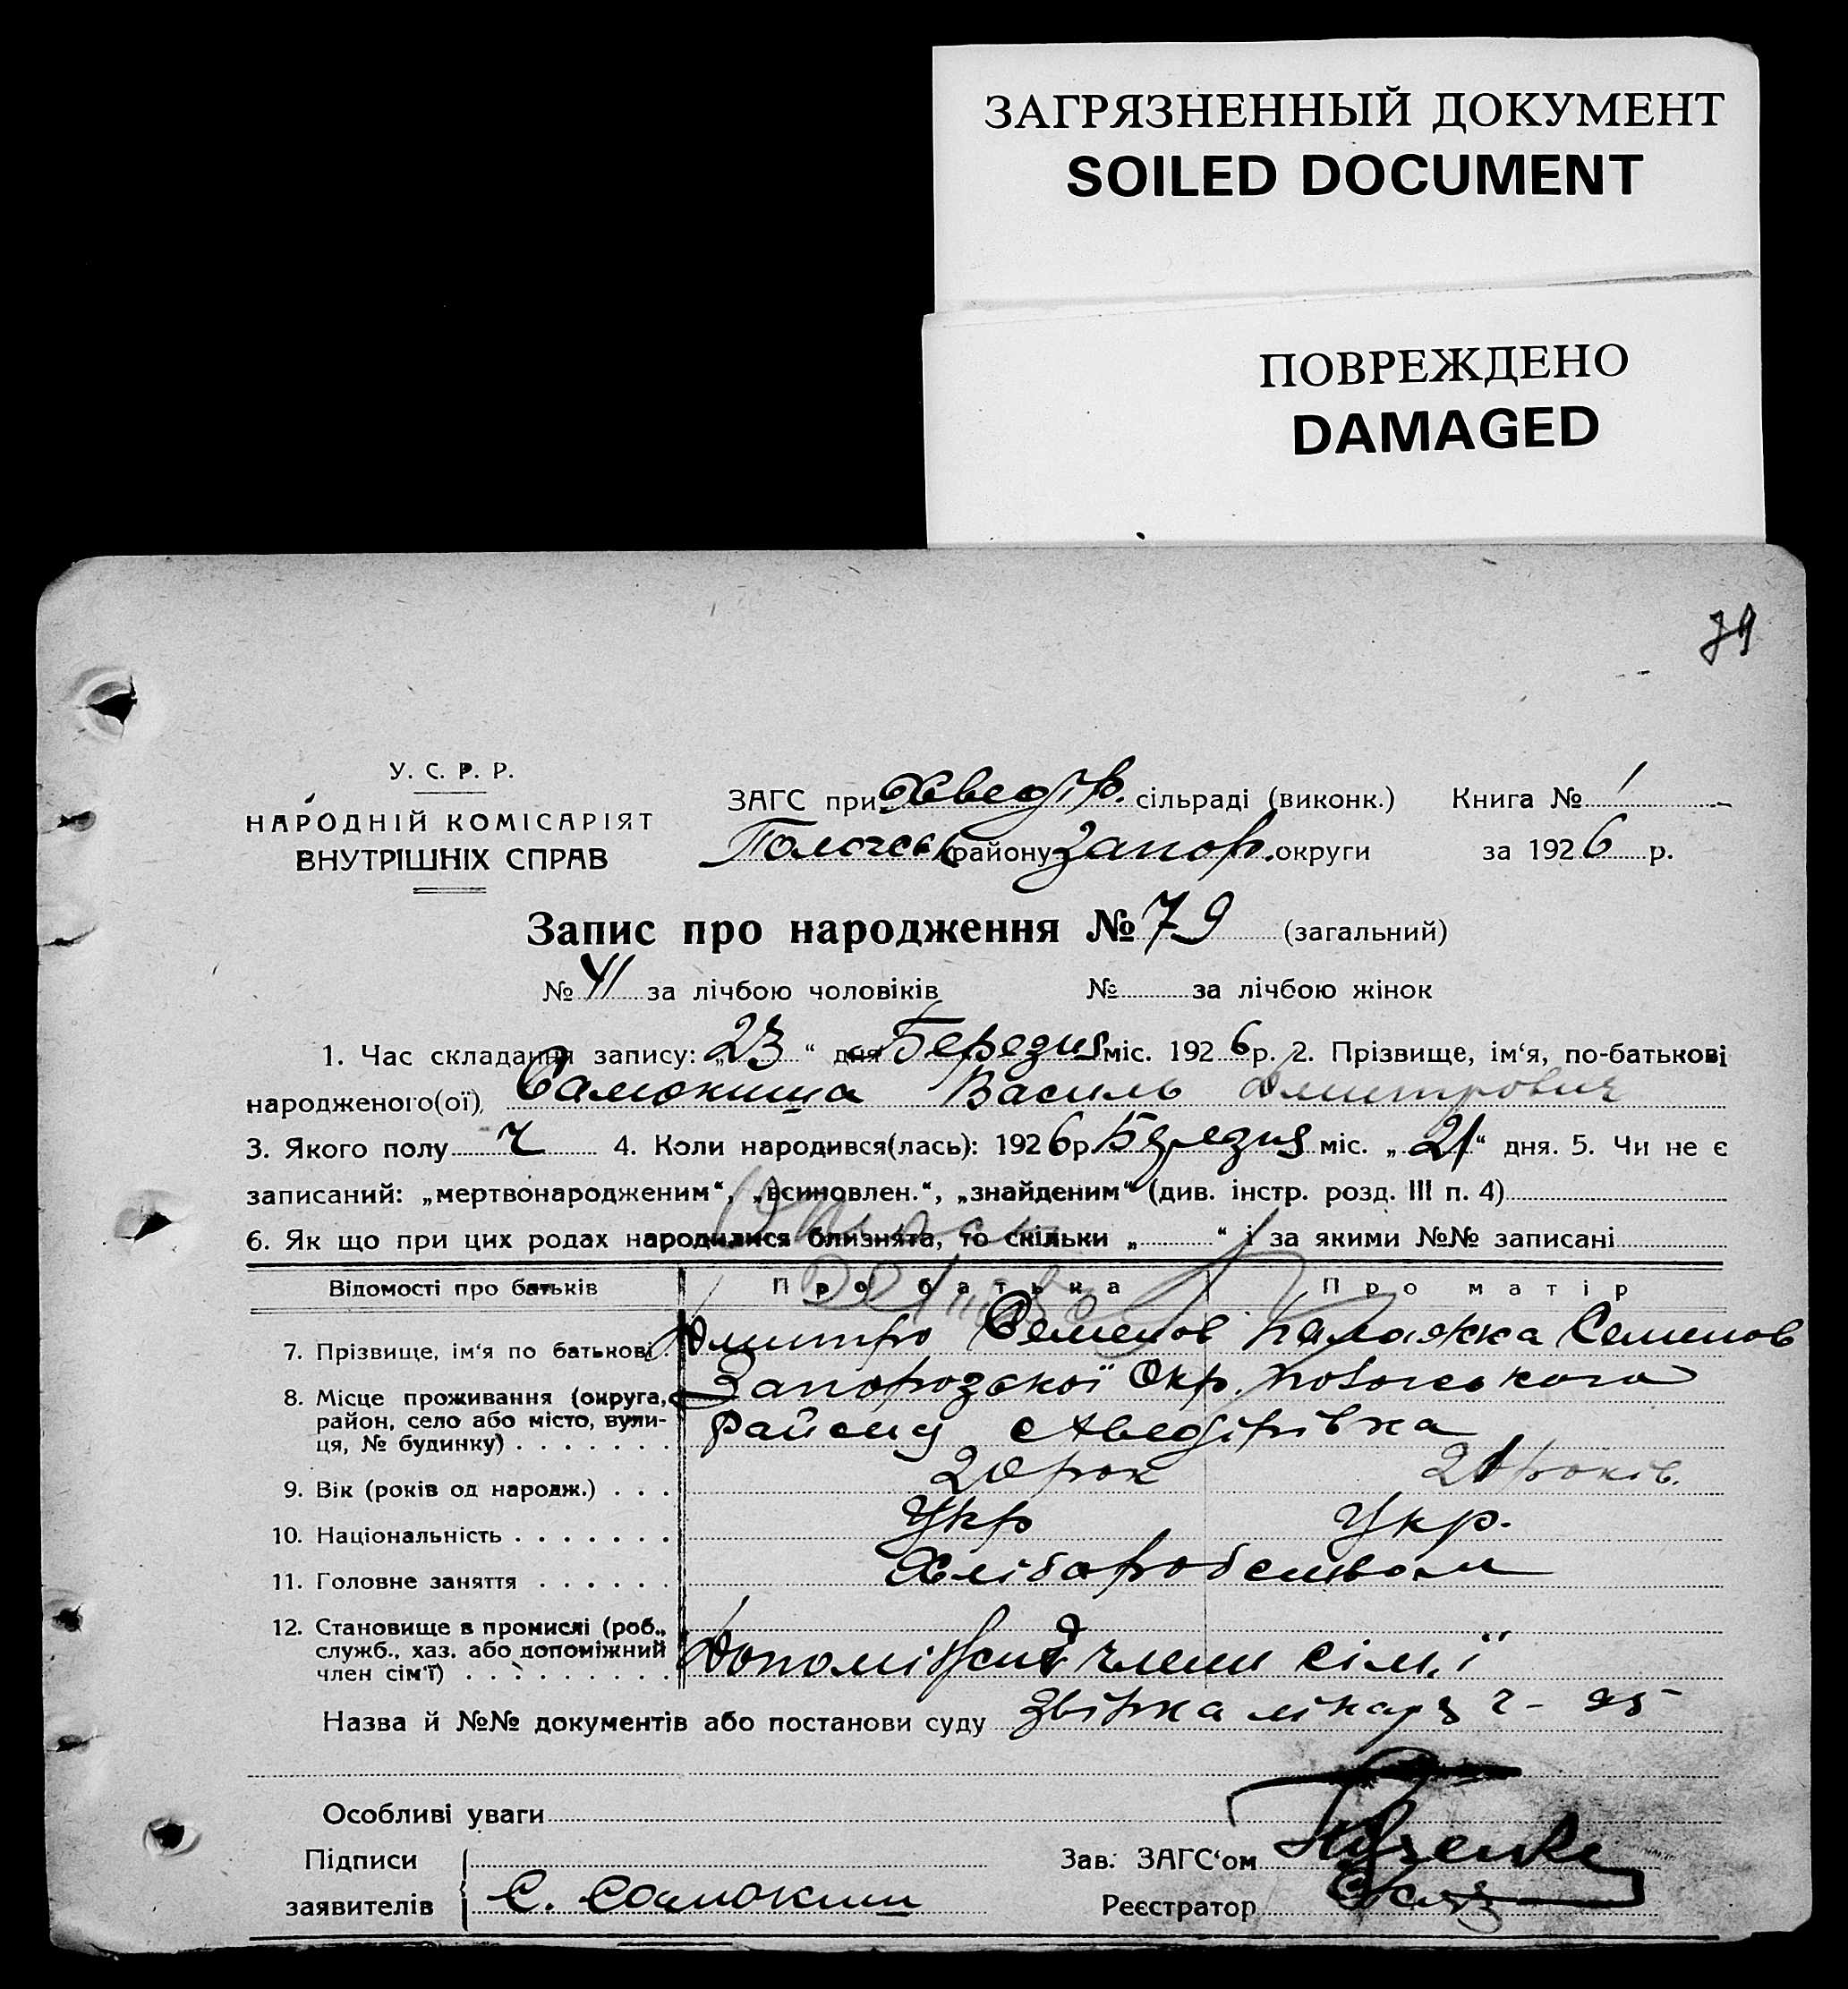 ЗАГРЯЗНЕННЫЙ ДОКУМЕНТ
SOILED DOCUMENT
ПОВРЕЖДЕНО
DAMAGED
79
У. С. Р. Р.
НАРОДНІЙ КОМІСАРІЯТ
ВНУТРІШНІХ СПРАВ
ЗАГС при Хведір. сільраді (виконк.) Книга № 1
району Запор. округи за 1926 р.
Запис про народження № 79 (загальний)
№ 41 за лічбою чоловіків № за лічбою жінок
1. Час складання запису: „23“ дня Березня міс. 1926 р. 2. Прізвище, ім‘я, по-батькові
народженого(ої) Самокиша Василь Дмитрович
3. Якого полу ч 4. Коли народився(лась): 1926 р. Березня міс. „21“ дня. 5. Чи не є
записаний: „мертвонародженим“, „всиновлен.“, „знайденим“ (див. інстр. розд. III п. 4)
6. Як що при цих родах народилися близнята, то скільки „ “ і за якими №№ записані
Відомості про батьків Про батька Про матір
7. Прізвище, ім‘я по батькові. Дмитро Семенов Палажка Семенов
8. Місце проживання (округа, Запорозської Окр.
район, село або місто, вули- району
ця, № будинку)
9. Вік (років од народж.) 20 рок 20 років.
10. Національність Укр Укр.
11. Головне заняття Хліборобством
12. Становище в промислі (роб.,
служб., хаз. або допоміжний
член сім‘ї) члени сім.ї
Назва й №№ документів або постанови суду лікаря ч - 25
Особливі уваги
Підписи Зав. ЗАГС‘ом
заявителів С. Самокиш Реєстратор